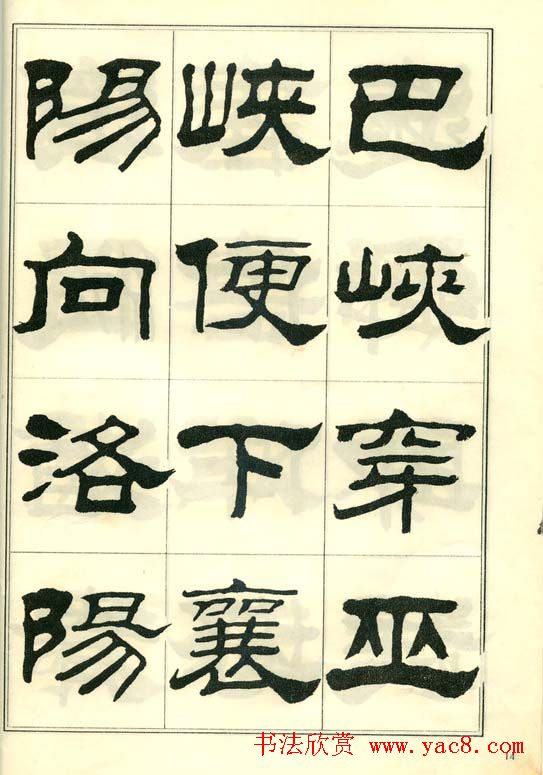 巴峽穿巫
峽便下襄
陽向洛陽
书法欣赏 www.yac8.com
14